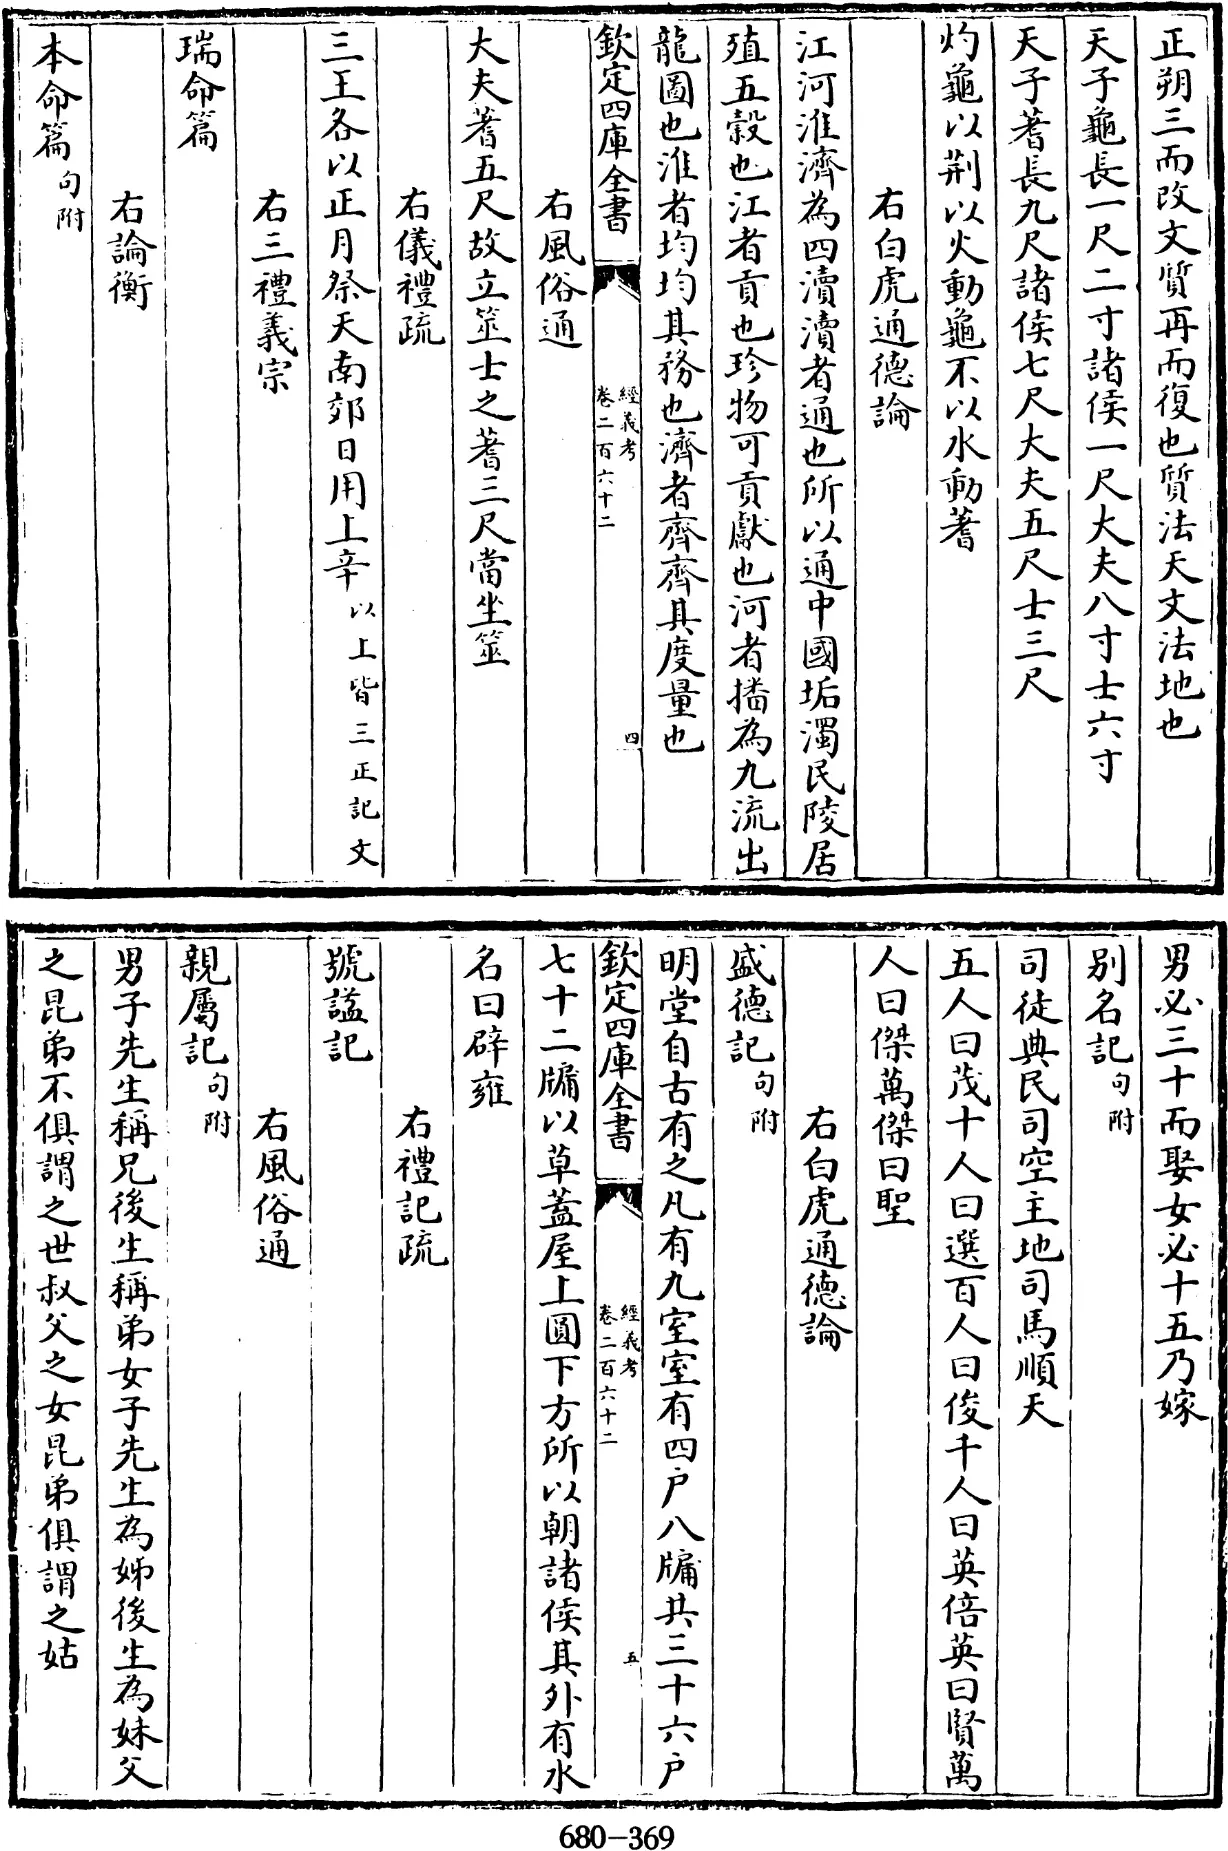 正朔三而改文質再而復也質法天文法地也
天子龜長一尺二寸諸侯一尺大夫八寸士六寸
天子蓍長九尺諸侯七尺大夫五尺士三尺
灼龜以荆以火動龜不以水動蓍
右白虎通德論
江河淮濟為四瀆瀆者通也所以通中國垢濁民陵居
殖五穀也江者貢也珍物可貢獻也河者播為九流出
龍圖也淮者均均其務也濟者齊齊其度量也
欽定四庫全書
經義考
卷二百六十二
四
右風俗通
大夫蓍五尺故立筮士之蓍三尺當坐筮
右儀禮疏
三王各以正月祭天南郊日用上辛以上皆三正記文
右三禮義宗
瑞命篇
右論衡
本命篇句附
男必三十而娶女必十五乃嫁
别名記句附
司徒典民司空主地司馬順天
五人曰茂十人曰選百人曰俊千人曰英倍英曰賢萬
人曰傑萬傑曰聖
右白虎通德論
盛德記句附
明堂自古有之凡有九室室有四户八牖共三十六户
欽定四庫全書
經義考
卷二百六十二
五
七十二牖以草蓋屋上圓下方所以朝諸侯其外有水
名曰辟雍
右禮記疏
號諡記
右風俗通
親屬記句附
男子先生稱兄後生稱弟女子先生為姊後生為妹父
之昆弟不俱謂之世叔父之女昆弟俱謂之姑
680-369